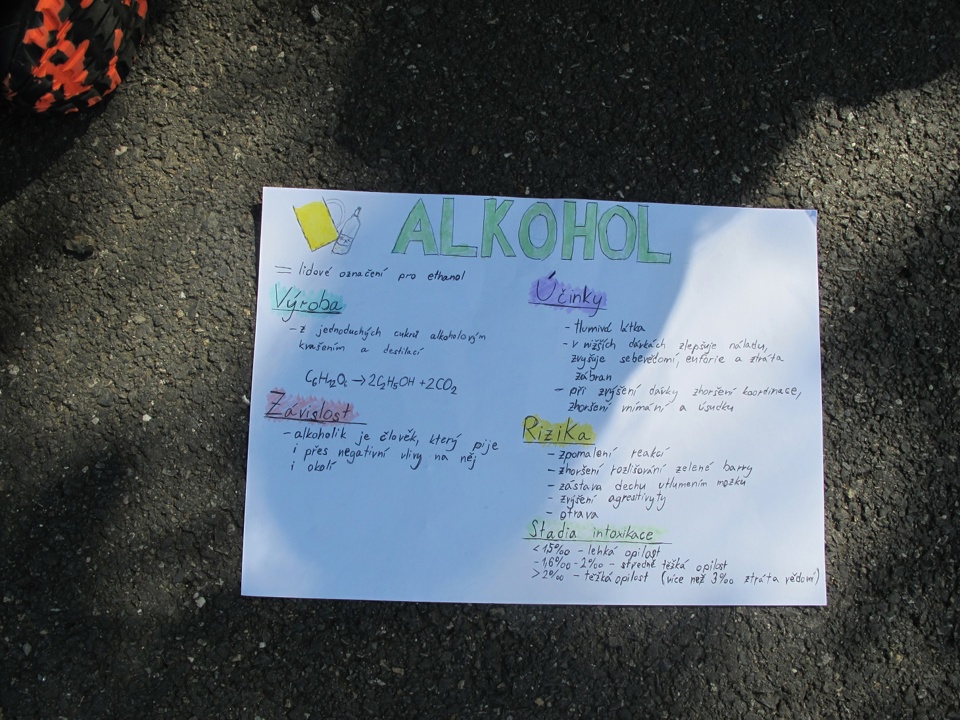 ALKOHOL
= lidové označení pro ethanol
Výroba
- z jednoduchých cukrů alkoholovým
kvašením a destilací
C6H12O6 → 2C2H5OH + 2CO2
Závislost
- alkoholik je člověk, který pije
i přes negativní vlivy na něj
i okolí
Účinky
- tlumivá látka
- v nižších dávkách zlepšuje náladu,
zvyšuje sebevědomí, euforie a ztráta
zábran
- při zvýšení dávky zhoršení koordinace,
zhoršení vnímání a úsudku
Rizika
- zpomalení reakcí
- zhoršení rozlišování zelené barvy
- zástava dechu utlumením mozku
- zvýšení agresitivyty
- otrava
Stadia intoxikace
< 1,5‰ - lehká opilost
- 1,6‰ - 2‰ - středně těžká opilost
> 2‰ - těžká opilost (více než 3‰ ztráta vědomí)